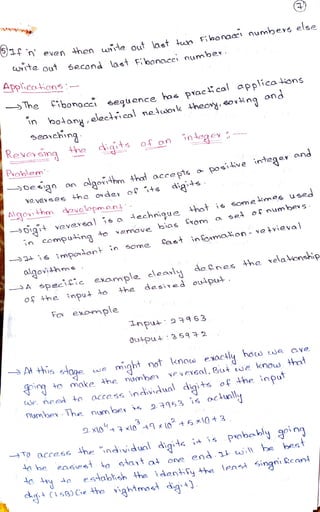 7
⑤ If 'n' even then write out last two Fibonacci numbers else
write out second last Fibonacci number.
Applications:-
→The Fibonacci sequence has practical applications
in botany, electrical network theory, sorting and
searching.
Reversing the digits of an integer:-
Problem
→Design an algorithm that accepts a positive integer and
reverses the order of its digits.
Algorithm development:-
→Digit reversal is a technique that is sometimes used
in computing to remove bias from a set of numbers.
→It is important in some fast information-retrieval
algorithms.
→A specific example clearly defines the relationship
of the input to the desired output.
For example
Input : 27953
Output : 35972
→At this stage we might not know exactly how we are
going to make the number reversal. But we know that
we need to access individual digits of the input
number. The number is 27953 is actually
2x10⁴+7x10³+9x10²+5x10+3
→To access the individual digits it is probably going
to be easiest to start at one end. It will be best
to try to establish the identify the least singnificant
digit (LSB) [ie the rightmost digit].